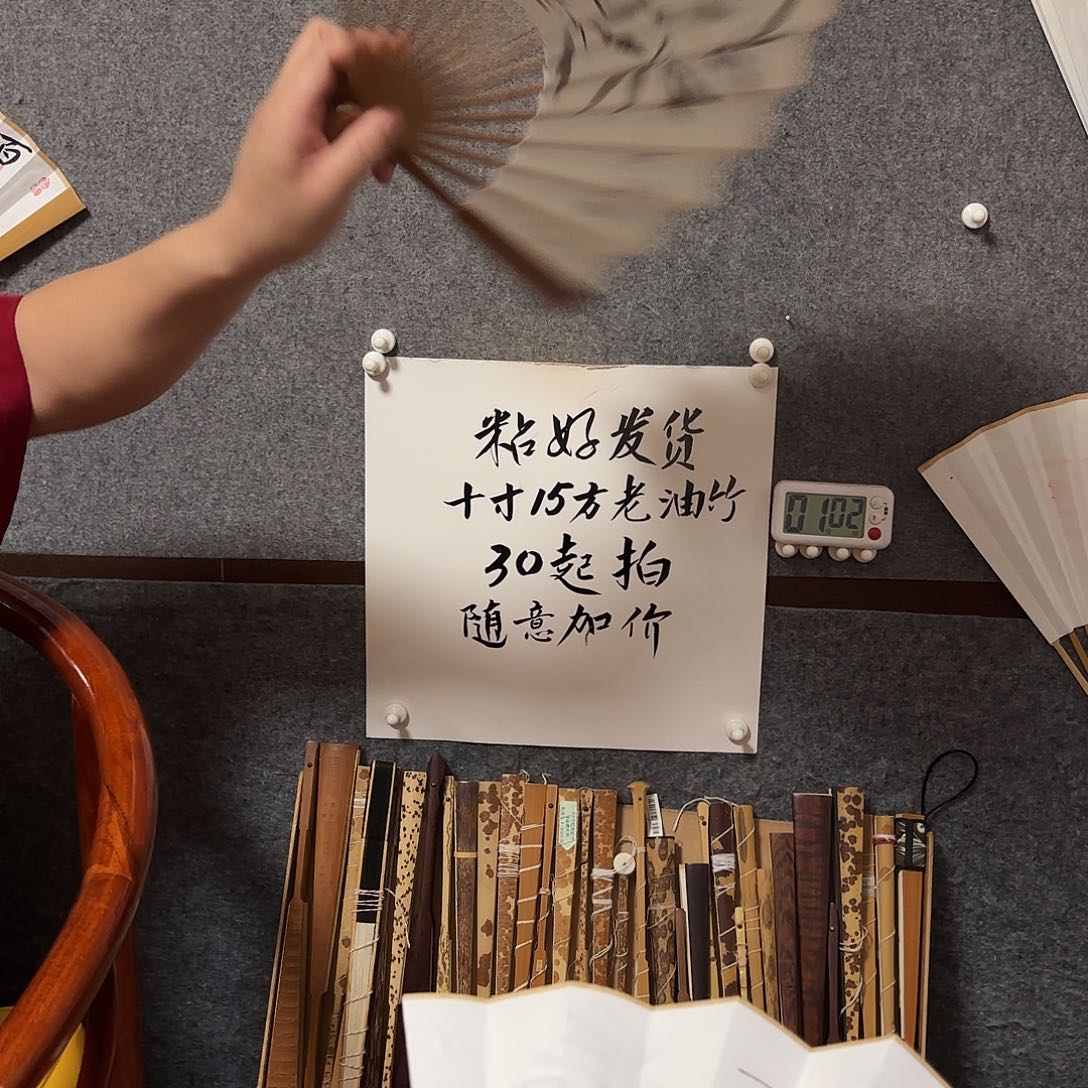 粘好发货
十寸15方老油竹
30起拍
随意加价
0102